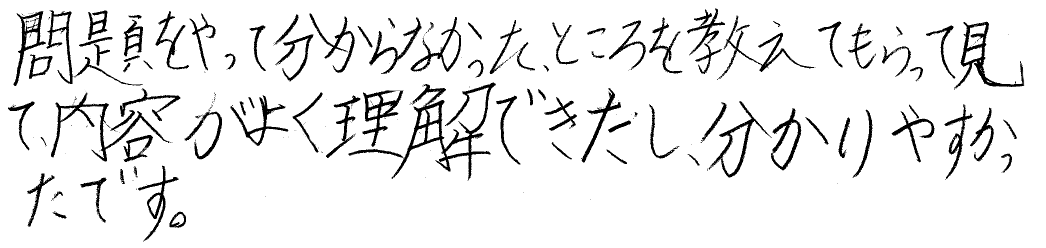 問題をやって分からなかった、ところを教えてもらって見
て、内容がよく理解できたし、分かりやすかっ
たです。